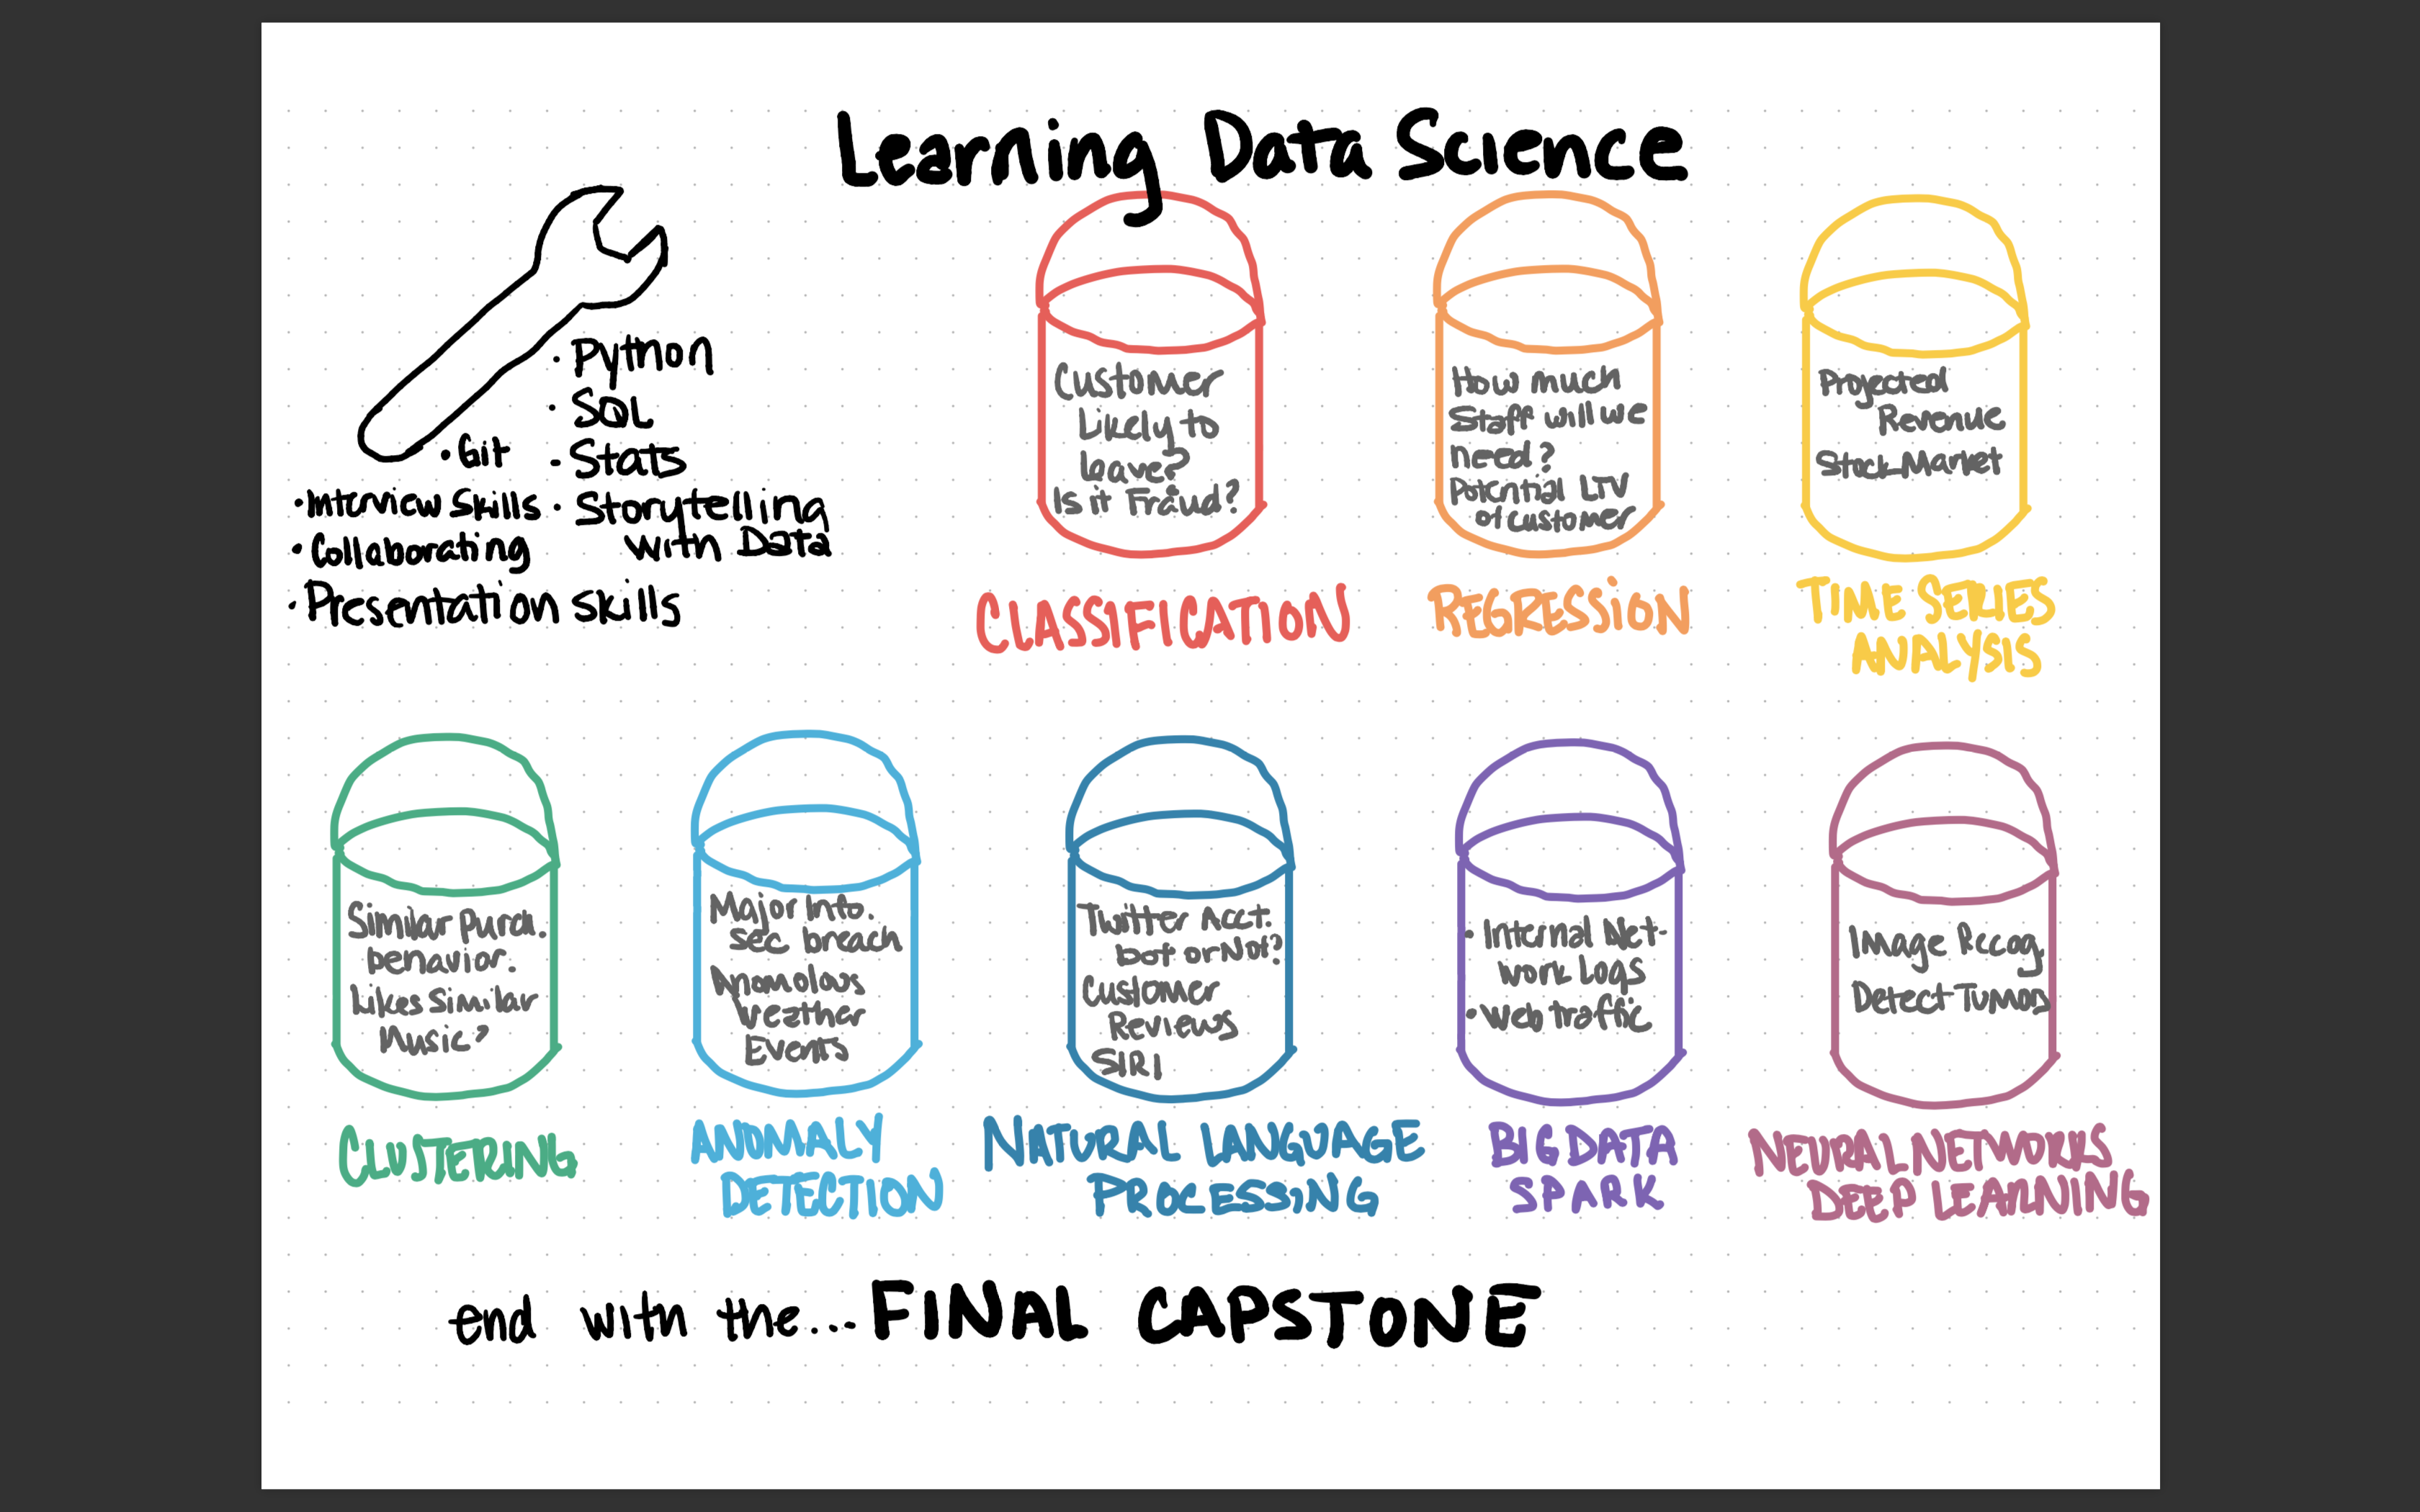 Learning Data Science
· Python
· SQL
· Git
- Stats
· Interview Skills
· Storytelling
with Data
· Collaborating
· Presentation skills
Customer
Likely to
leave?
Is it Fraud?
CLASSIFICATION
How much
Staff will we
need?
Potential LTV
of customer
REGRESSION
Projected
Revenue
Stock Market
TIME SERIES
ANALYSIS
Similar purch.
behavior.
Likes Similar
Music?
CLUSTERING
Major Info.
sec breach
Anomolous
Weather
Events
ANOMALY
DETECTION
Twitter Acct.
bot or Not?
Customer
Reviews
SIRI
NATURAL LANGUAGE
PROCESSING
· Internal Net-
work Logs
· Web traffic
BIG DATA
SPARK
Image Recog
Detect Tumors
NEURAL NETWORKS
DEEP LEARNING
end with the... FINAL CAPSTONE